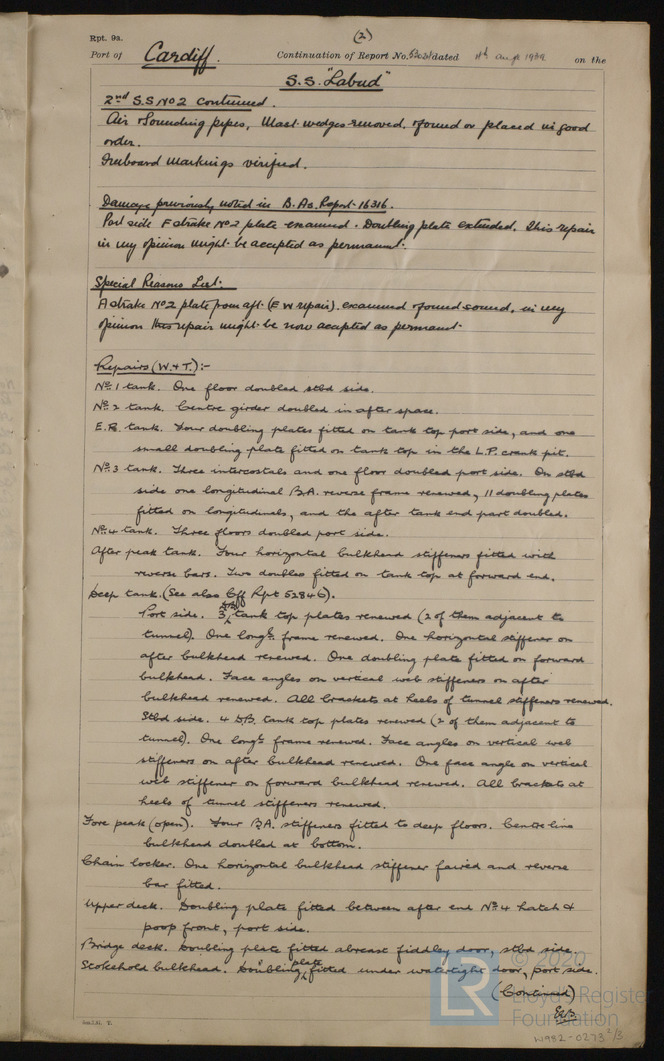 Rpt. 9a.
(2)
Port of Cardiff. Continuation of Report No. dated 11th Aug on the
S.S. "Labud"
2nd S.S No 2 continued.
Air & Sounding pipes, Mast wedges removed, found or placed in good
order.
Freeboard Markings verified.
Damage previously noted in B.As. Report 16316.
Port side F strake No 2 plate examined. Doubling plate extended. This repair
in my opinion might be accepted as permanent.
Special Reasons List.
A strake No 2 plate from aft. (E W repair). examined & found sound, in my
opinion this repair might be now accepted as permanent.
Repairs (W.&T.):-
No. 1 tank. One floor doubled stbd side.
No. 2 tank. Centre girder doubled in after space.
E.R. tank. Four doubling plates fitted on tank top port side, and one
small doubling plate fitted on tank top in the L.P. crank pit.
No. 3 tank. Three intercostals and one floor doubled port side. On stbd
side one longitudinal B.A. reverse frame renewed, 11 doubling plates
fitted on longitudinals, and the after tank end part doubled.
No. 4 tank. Three floors doubled port side.
After peak tank. Four horizontal bulkhead stiffeners fitted with
reverse bars. Two doubles fitted on tank top at forward end.
Deep tank. (See also Cff Rpt 52846).
Port side. 3 D.B. tank top plates renewed (2 of them adjacent to
tunnel). One longl. frame renewed. One horizontal stiffener on
after bulkhead renewed. One doubling plate fitted on forward
bulkhead. Face angles on vertical web stiffeners on after
bulkhead renewed. All brackets at heels of tunnel stiffeners renewed.
Stbd side. 4 D.B. tank top plates renewed (2 of them adjacent to
tunnel). One longl. frame renewed. Face angles on vertical web
stiffeners on after bulkhead renewed. One face angle on vertical
web stiffener on forward bulkhead renewed. All brackets at
heels of tunnel stiffeners renewed.
Fore peak (open). Four B.A. stiffeners fitted to deep floors. Centre line
bulkhead doubled at bottom.
Chain locker. One horizontal bulkhead stiffener faired and reverse
bar fitted.
Upper deck. Doubling plate fitted between after end No. 4 hatch &
poop front, port side.
Bridge deck. Doubling plate fitted abreast fiddley door, stbd side.
Stokehold bulkhead. Doubling plate fitted under watertight door, port side.
(Continued)
© 2020
LR Lloyd's Register
Foundation
W982-0273 2/3